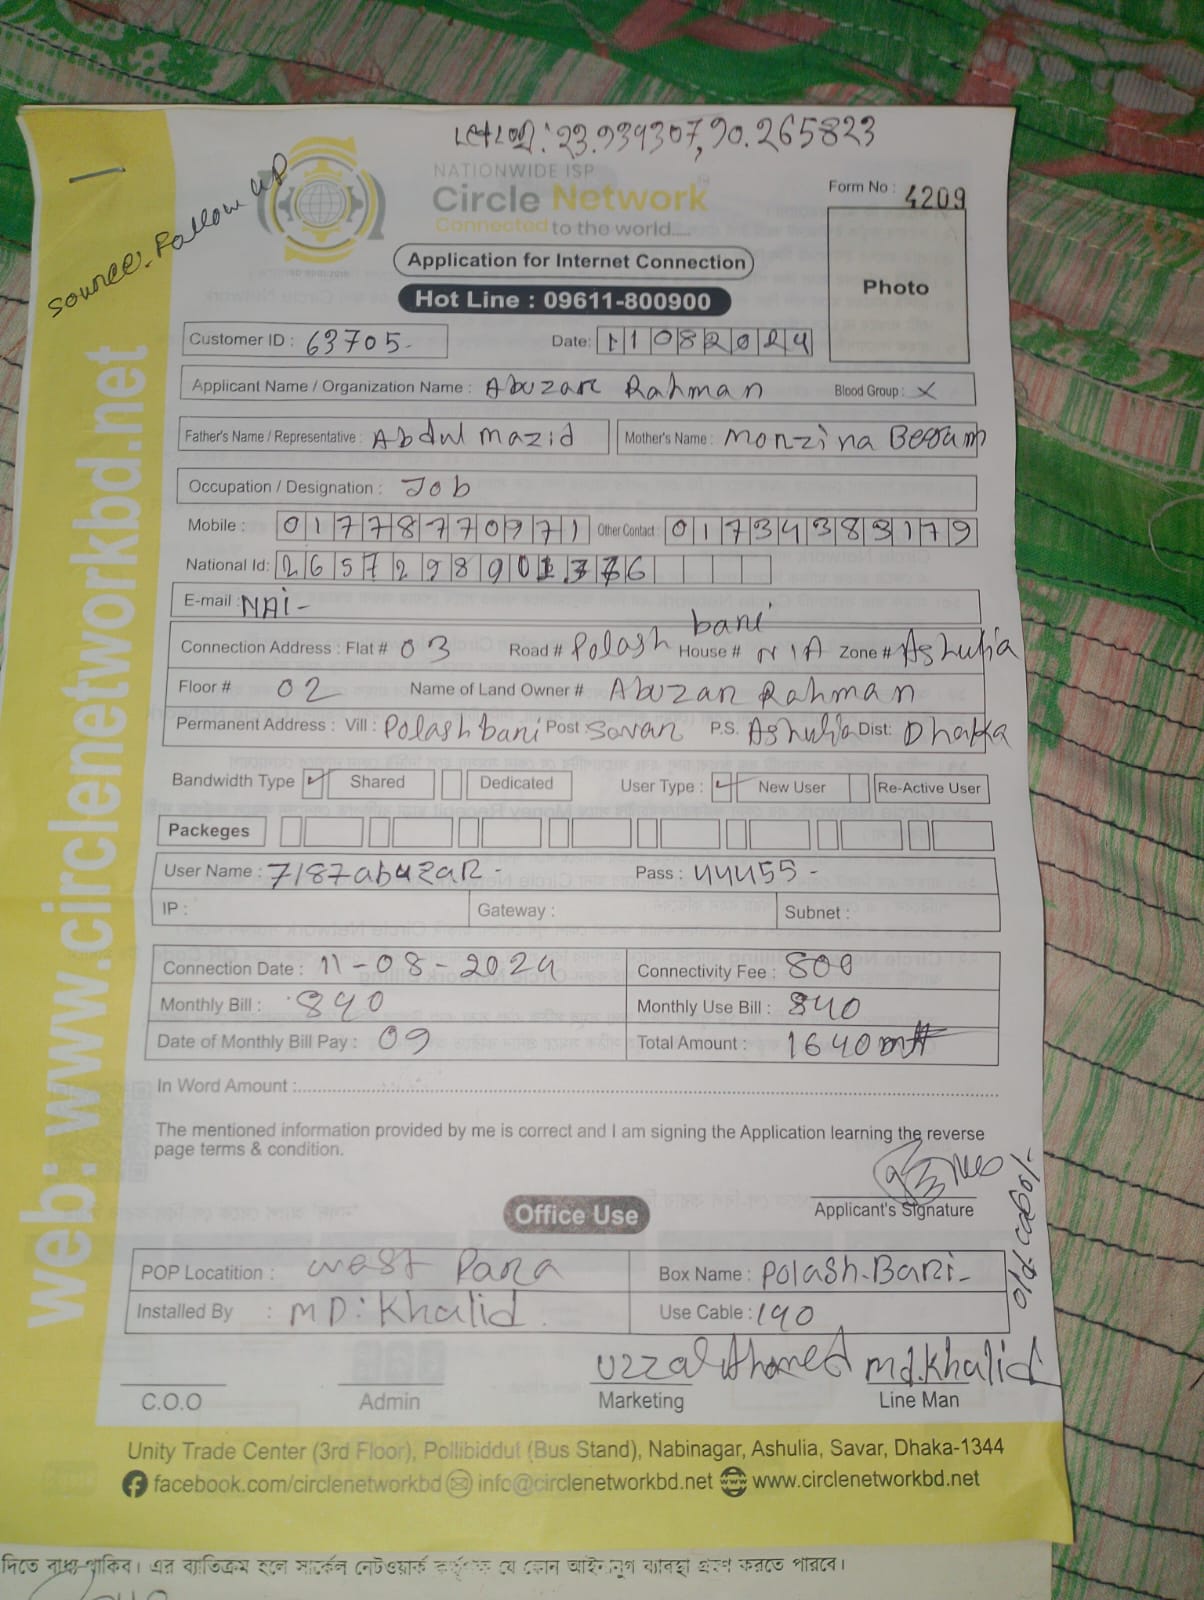 Let Lon: 23.939307, 90.265823
Source. Follow up
NATIONWIDE ISP
Circle Network
Connected to the world....
Form No : 4209
Photo
Application for Internet Connection
Hot Line : 09611-800900
Customer ID : 63705- Date: 11082024
Applicant Name / Organization Name : Abuzar Rahman Blood Group : X
Father's Name / Representative : Abdul mazid Mother's Name : Monzina Begam
Occupation / Designation : Job
Mobile : 01778770971 Other Contact : 01734383179
National Id: 2657298901376
E-mail : NAI-
Connection Address : Flat # 03 Road # Polash bari House # N/A Zone # Ashulia
Floor # 02 Name of Land Owner # Abuzar Rahman
Permanent Address : Vill : Polashbari Post : Savar P.S. Ashulia Dist: Dhaka
Bandwidth Type ✓ Shared Dedicated User Type : ✓ New User Re-Active User
Packeges
User Name : 7187abuzar - Pass : 44455 -
IP : Gateway : Subnet :
Connection Date : 11-08-2024 Connectivity Fee : 800
Monthly Bill : 840 Monthly Use Bill : 840
Date of Monthly Bill Pay : 09 Total Amount : 1640
In Word Amount :
The mentioned information provided by me is correct and I am signing the Application learning the reverse
page terms & condition.
Applicant's Signature
Office Use
POP Locatition : west Para Box Name : Polash-Bari-
Installed By : MD: Khalid. Use Cable : 190
Uzzal Ahamed Md.Khalid
C.O.O Admin Marketing Line Man
web: www.circlenetworkbd.net
Unity Trade Center (3rd Floor), Pollibiddut (Bus Stand), Nabinagar, Ashulia, Savar, Dhaka-1344
facebook.com/circlenetworkbd info@circlenetworkbd.net www.circlenetworkbd.net
দিতে বাধ্য থাকিব। এর ব্যতিক্রম হলে সার্কেল নেটওয়ার্ক কর্তৃপক্ষ যে কোন আইনানুগ ব্যাবস্থা গ্রহণ করতে পারবে।